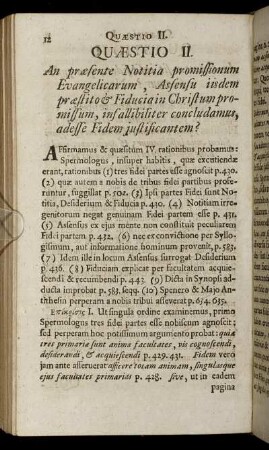 12 QUÆSTIO II.
QUÆSTIO II.
An præsente Notitia promissionum
Evangelicarum, Assensu iisdem
præstito & Fiducia in Christum pro-
missum, infallibiliter concludamus,
adesse Fidem justificantem?
AFfirmamus & quæsitum IV. rationibus probamus:
Spermologus, insuper habitis, quæ excitiendæ
erant, rationibus (1) tres fidei partes esse agnoscit p. 430.
(2) quæ autem a nobis de tribus fidei partibus profe-
runtur, suggillat p. 504. (3) Ipsi partes Fidei sunt Noti-
tia, Desiderium & Fiducia p. 430. (4) Notitiam irre-
genitorum negat genuinam Fidei partem esse p. 431,
(5) Assensus ex ejus mente non constituit peculiarem
Fidei partem p. 432. (6) nec ex convictione per Syllo-
gismum, aut informatione hominum provenit, p. 583.
(7) Idem ille in locum Assensus surrogat Desiderium
p. 436. (8) Fiduciam explicat per facultatem acquie-
scendi & recumbendi p. 443. (9) Dicta in Synopsi ad-
ducta improbat p. 583. seqq. (10) Spencro & Majo An-
tithesin perperam a nobis tribui asseverat p. 634. 635.
Ἐπίκρισις I. Ut singula ordine examinemus, primo
Spermologus tres fidei partes esse nobiscum agnoscit;
sed perperam hoc potissimum argumento probat: quia
tres primariæ sunt animæ facultates, vis cognoscendi,
desiderandi, & acquiescendi p. 429. 431. Fidem vero
jam ante asseruerat afficere totam animam, singulasque
ejus facultates primarias p. 428. sive, ut in eadem
pagina